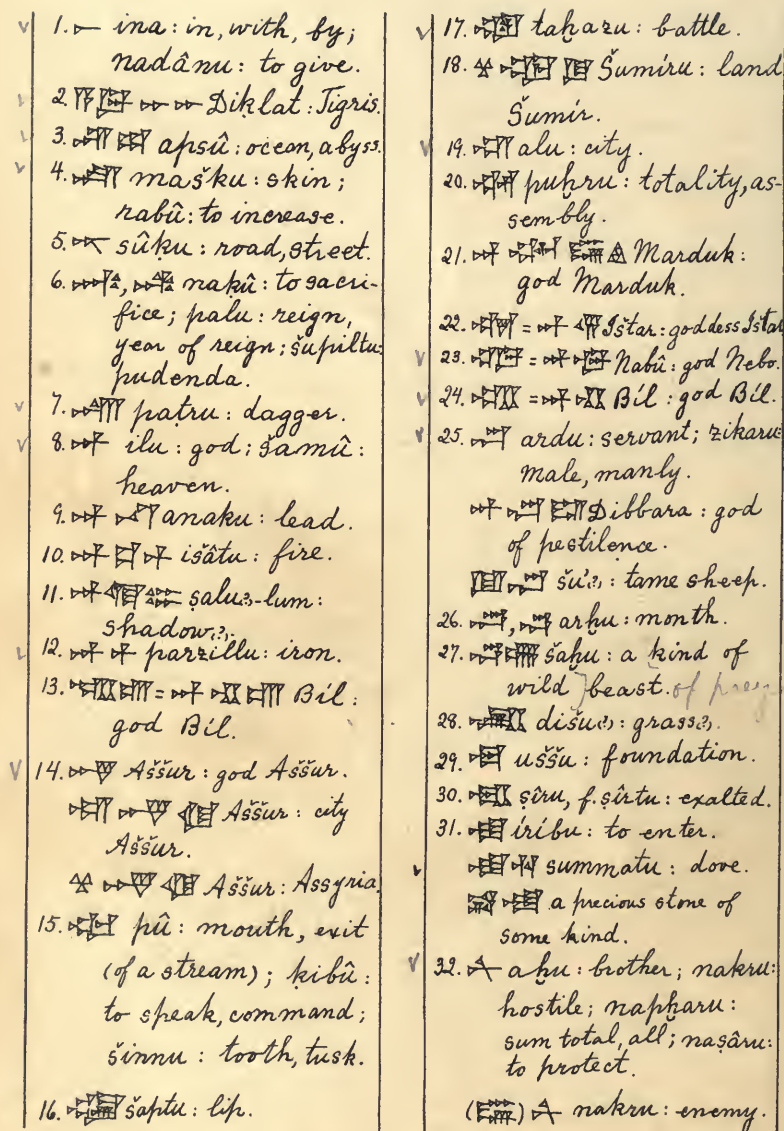 1. 𒀸 ina: in, with, by;
nadânu: to give.
2. Diḳlat: Tigris.
3. 𒍪 𒀊 apsû: ocean, abyss.
4. 𒋢 mašku: skin;
rabû: to increase.
5. 𒋻 sûḳu: road, street.
6. 𒁄, naḳû: to sacri-
fice; palu: reign,
year of reign; šupiltu:
pudenda.
7. 𒄈 paṭru: dagger.
8. 𒀭 ilu: god; šamû:
heaven.
9. 𒀭 𒈾 anaku: lead.
10. 𒀭 išâtu: fire.
11. 𒀭 ṣalu(?)-lum:
shadow(?).
12. 𒀭 𒁇 parzillu: iron.
13. = 𒀭 Bíl:
god Bíl.
14. Aššur: god Aššur.
𒌷 Aššur: city
Aššur.
𒆳 Aššur: Assyria.
15. 𒅗 pû: mouth, exit
(of a stream); ḳibû:
to speak, command;
šinnu: tooth, tusk.
16. šaptu: lip.
17. taḫazu: battle.
18. 𒆳 Šumíru: land
Šumír.
19. 𒌷 alu: city.
20. puḫru: totality, as-
sembly.
21. 𒀭 Marduk:
god Marduk.
22. = 𒀭 Ištar: goddess Ištar
23. = 𒀭 Nabû: god Nebo.
24. = 𒀭 Bíl: god Bíl.
25. 𒀴 ardu: servant; zikaru:
male, manly.
𒀭 𒀴 Dibbara: god
of pestilence.
šu'(?): tame sheep.
26. arḫu: month.
27. šaḫu: a kind of
wild beast. of prey
28. dišu(?): grass(?).
29. uššu: foundation.
30. 𒈤 ṣîru, f. ṣîrtu: exalted.
31. 𒌅 íríbu: to enter.
𒌅 𒄷 summatu: dove.
a precious stone of
some kind.
32. 𒉽 aḫu: brother; nakru:
hostile; napḫaru:
sum total, all; naṣâru:
to protect.
𒉽 nakru: enemy.